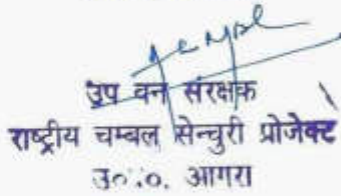 उप वन संरक्षक
राष्ट्रीय चम्बल सेन्चुरी प्रोजेक्ट
उ०.०. आगरा